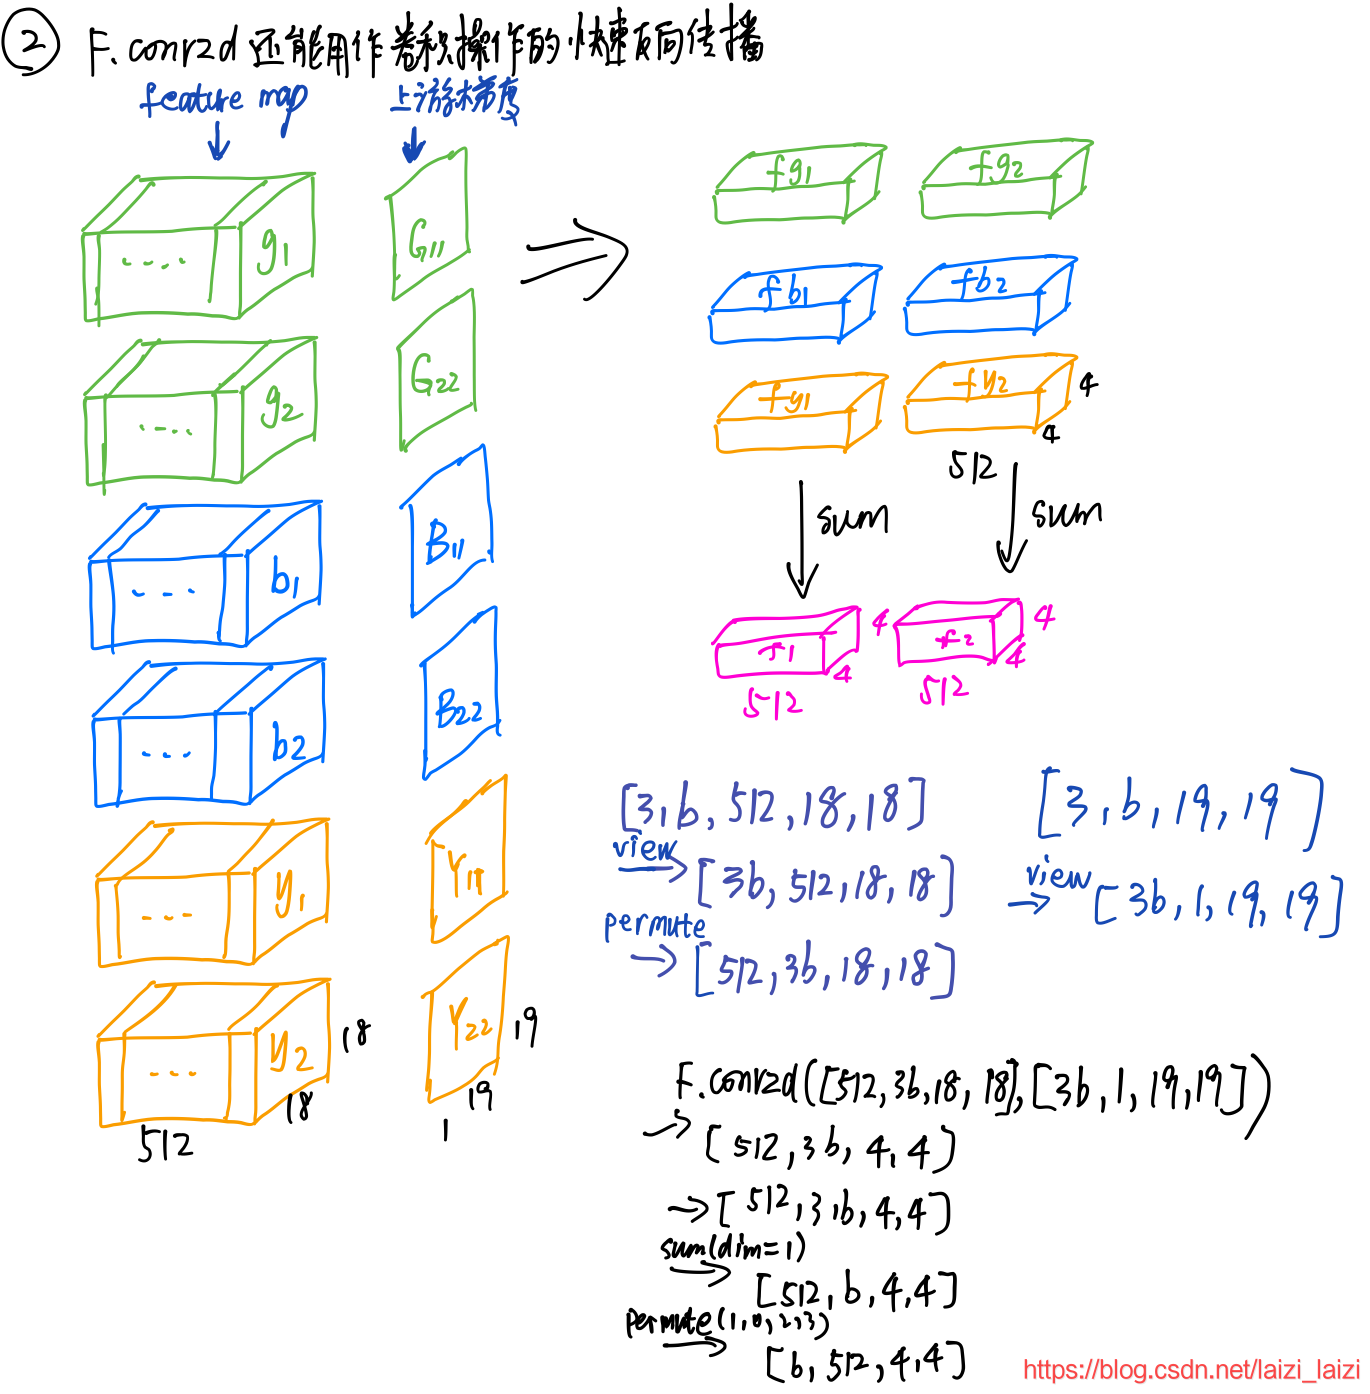 ② F.conv2d 还能用作卷积操作的快速反向传播
feature map
上游梯度
g1
G11
g2
G22
b1
B11
b2
B22
y1
Y11
y2
Y22
18
18
512
19
19
1
fg1
fg2
fb1
fb2
fy1
fy2
4
4
512
sum
sum
f1
4
4
512
f2
4
4
512
[3,b,512,18,18]
view
→ [3b,512,18,18]
permute
→ [512,3b,18,18]
[3,b,19,19]
view
→ [3b,1,19,19]
F.conv2d([512,3b,18,18],[3b,1,19,19])
→ [512,3b,4,4]
→ [512,3,b,4,4]
sum(dim=1)
→ [512,b,4,4]
permute(1,0,2,3)
→ [b,512,4,4]
https://blog.csdn.net/laizi_laizi